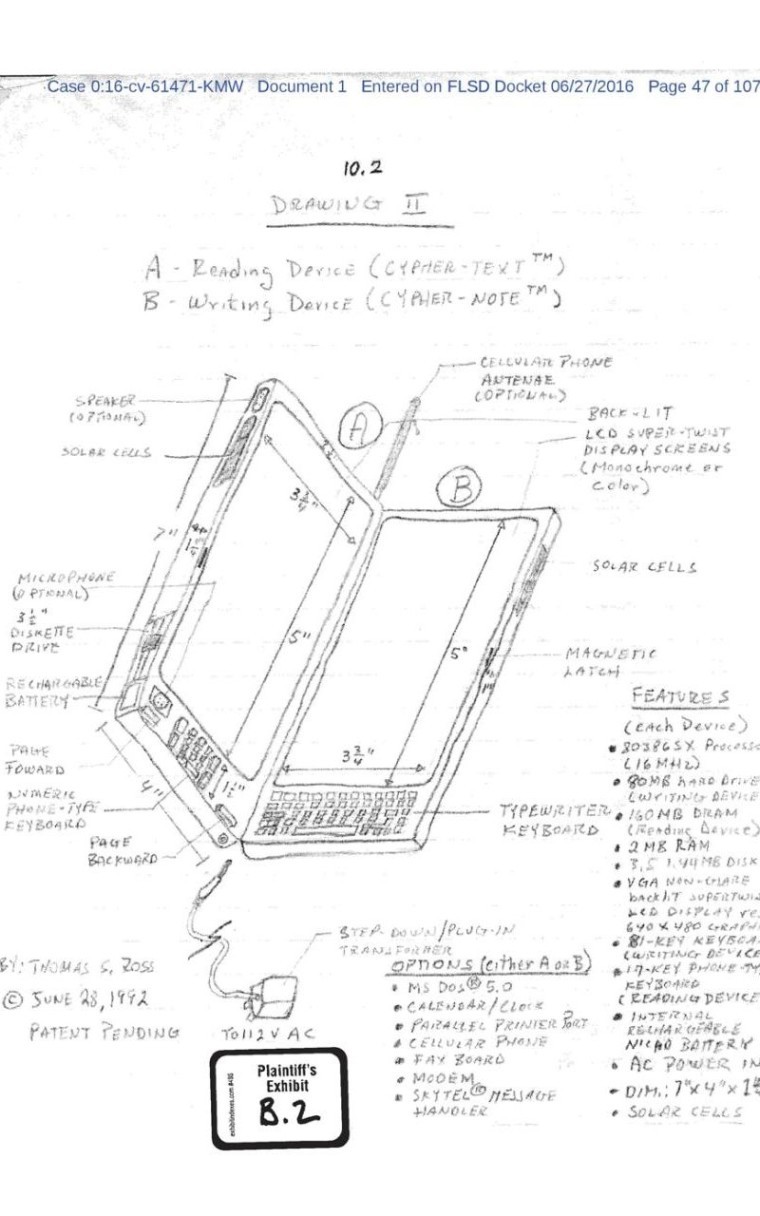 Case 0:16-cv-61471-KMW Document 1 Entered on FLSD Docket 06/27/2016 Page 47 of 107
10.2
DRAWING II
A - Reading Device (CYPHER-TEXT™)
B - Writing Device (CYPHER-NOTE™)
CELLULAR PHONE
ANTENAE
(OPTIONAL)
SPEAKER
(OPTIONAL)
SOLAR CELLS
A
B
BACK-LIT
LCD SUPER-TWIST
DISPLAY SCREENS
(Monochrome or
Color)
3 3/4"
7"
SOLAR CELLS
MICROPHONE
(OPTIONAL)
3 1/2"
DISKETTE
DRIVE
5"
5"
MAGNETIC
LATCH
RECHARGABLE
BATTERY
PAGE
FOWARD
NUMERIC
PHONE-TYPE
KEYBOARD
PAGE
BACKWARD
4"
1 1/2"
3 3/4"
TYPEWRITER
KEYBOARD
FEATURES
(each Device)
• 80386SX Processo
(16 MHz)
• 80MB HARD DRIVE
(WRITING DEVICE
• 160MB DRAM
(Reading Device)
• 2 MB RAM
• 3.5 1.44 MB DISK
• VGA NON-GLARE
backlit SUPERTWIS
LCD DISPLAY re
640 X 480 GRAPH
• 81-KEY KEYBOA
(WRITING DEVICE
• 17-KEY PHONE-TY
KEYBOARD
(READING DEVICE
• INTERNAL
RECHARGEABLE
NICAD BATTERY
• AC POWER IN
• DIM.: 7"x4"x1
• SOLAR CELLS
STEP-DOWN/PLUG-IN
TRANSFORMER
TO 112 V AC
OPTIONS (either A or B)
• MS DOS® 5.0
• CALENDAR/CLOCK
• PARALLEL PRINTER PORT
• CELLULAR PHONE
• FAX BOARD
• MODEM
• SKYTEL® MESSAGE
HANDLER
BY: THOMAS S. ROSS
© JUNE 28, 1992
PATENT PENDING
Plaintiff's
Exhibit
B.2